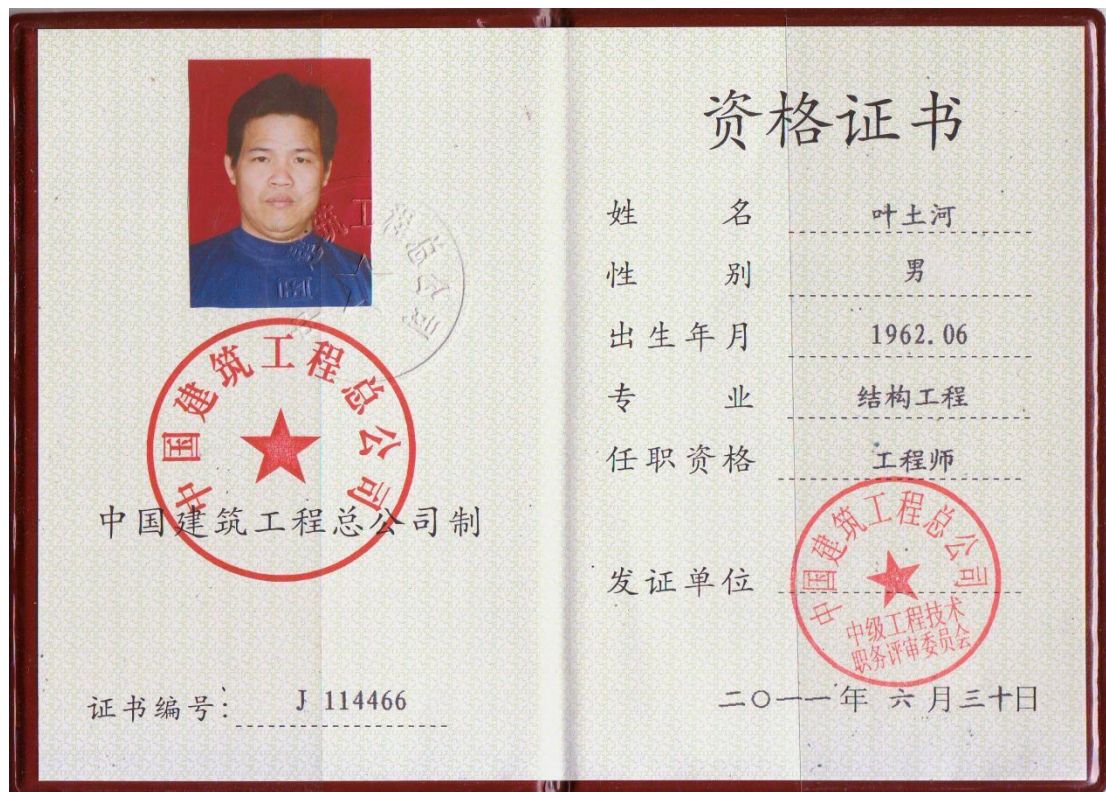 中国建筑工程总公司
中国建筑工程总公司
中国建筑工程总公司制
证书编号: J 114466
资格证书
姓名 叶土河
性别 男
出生年月 1962.06
专业 结构工程
任职资格 工程师
发证单位
中国建筑工程总公司
中级工程技术
职务评审委员会
二〇一一年 六月三十日